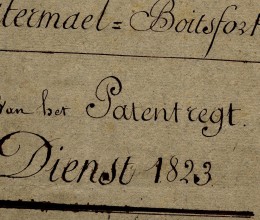 termael = Boitsfort
van het Patentregt.
Dienst 1823